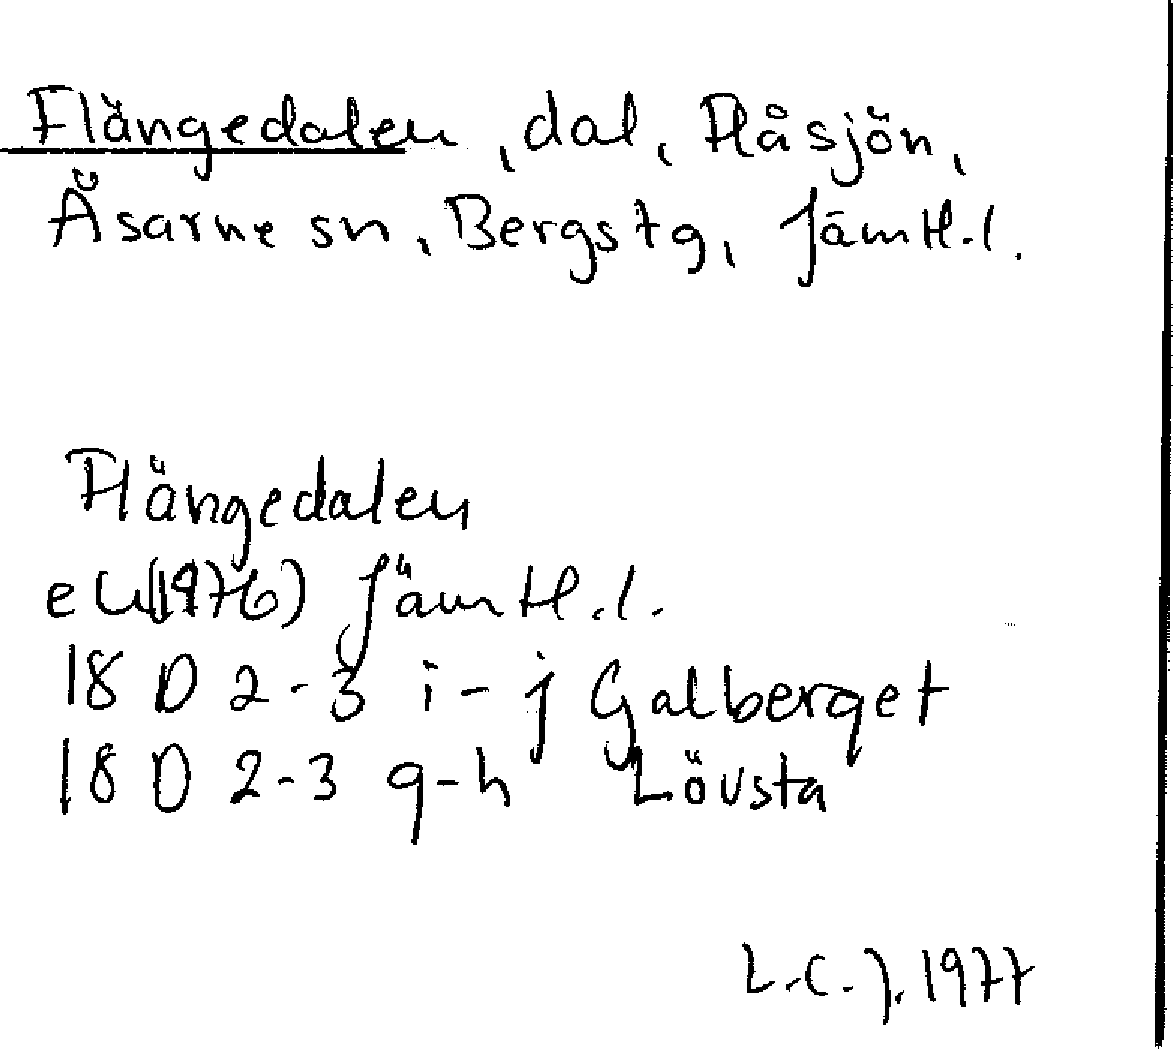 Flängedalen, dal, Flåsjön,
Åsarne sn, Bergs tg, Jämtl. l.
Flängedalen
ek (1976) Jämtl. l.
18 D 2-3 i-j Galberget
18 D 2-3 g-h Lövsta
L.C.J. 1977